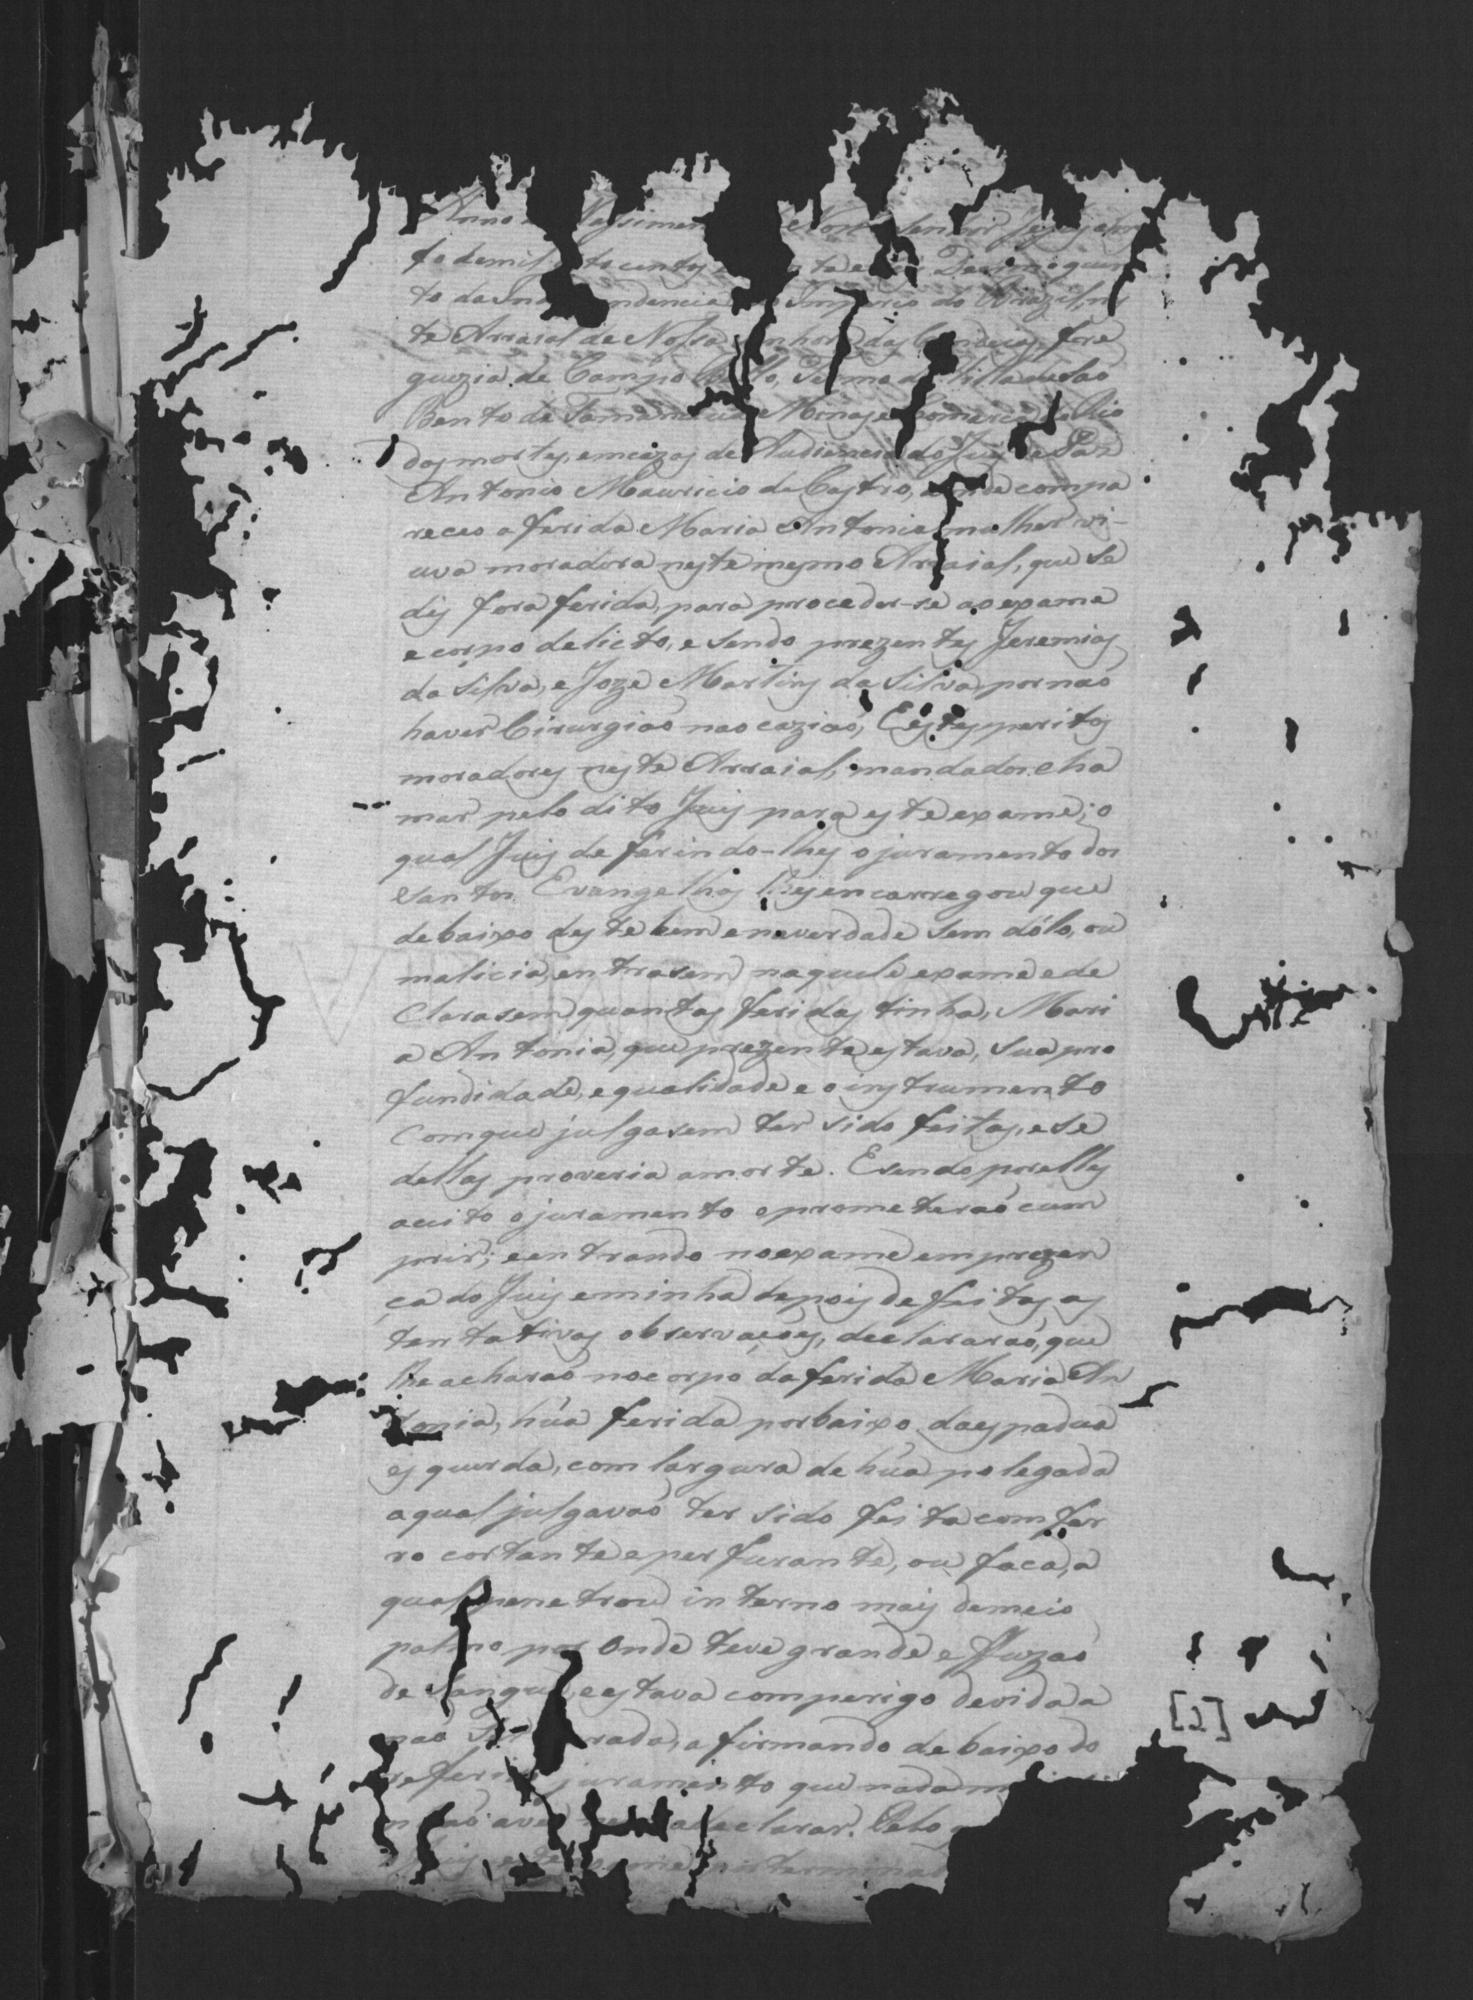 Anno Nassimen Nosso Senhor Jezus
to de mil oito centos e Decimo quin
to da In ndencia do Imperio do Brazil, nes
te Arraial de Nossa Senhora das Candeias, fre
guezia de Campo Bello, Termo da Villa de São
Bento de Tamanduá Minas e Comarca do Rio
das mortes, em cazas de Audiencia do Juis de Paz
Antonio Mauricio de Castro, aonde compa
receo a ferida Maria Antonia, mulher vi-
uva moradora neste mesmo Arraial, que se
dis fora ferida, para proceder-se ao exame
e corpo delicto, e sendo prezentes Jeremias
da Silva, e Joze Martins da Silva, por naõ
haver Cirurgiaõ na ocaziaõ, Estes peritos
moradores neste Arraial, mandados cha
mar pelo dito Juis para este exame; o
qual Juis deferindo-lhes o juramento dos
Santos Evangelhos lhes encarregou que
debaixo deste bem e na verdade sem dólo, ou
malicia, entrasem naquele exame e de
clarasem quantas feridas tinha, Mari
a Antonia, que prezente estava, sua pro
fundidade, e qualidade e o instrumento
com que julgasem ter sido feitas, e se
dellas proveria a morte. E sendo por elles
aceito o juramento o prometeraõ cum
prir; e entrando no exame em prezen
ça do Juis e minha depois de feitas as
tentativas observações, declararaõ, que
lhe acharaõ no corpo da ferida Maria An
tonia, húa ferida por baixo da espadua
esquerda, com largura de húa polegada
a qual julgavaõ ter sido feita com fer
ro cortante e perfurante, ou faca, a
qual penetrou interno mais de meio
palmo por onde teve grande efluzaõ
de sangue, e estava com perigo de vida a
naõ rada, afirmando debaixo do
referido juramento que nada m
naõ ave a declarar. Pelo q
Juis este exame terminad
[2]